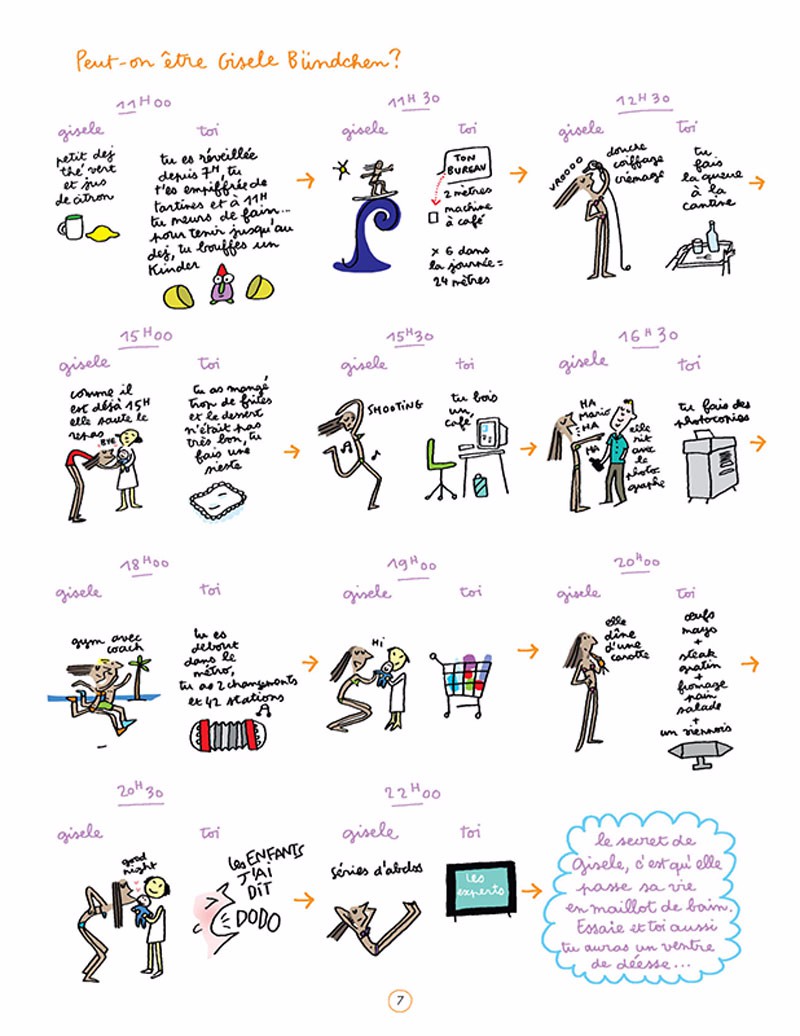 Peut-on être Gisele Bündchen?
11H00
gisele
petit dej
thé vert
et jus
de citron
toi
tu es réveillée
depuis 7H, tu
t'es empiffrée de
tartines et à 11H
tu meurs de faim...
pour tenir jusqu'au
dej, tu bouffes un
Kinder
11H30
gisele
toi
TON
BUREAU
2 mètres
machine
à café
x 6 dans
la journée =
24 mètres
12H30
gisele
VROOOO
douche
coiffage
crémage
toi
tu
fais
la queue
à la
cantine
15H00
gisele
comme il
est déjà 15H
elle saute le
repas
BYE
toi
tu as mangé
trop de frites
et le dessert
n'était pas
très bon, tu
fais une
sieste
15H30
gisele
SHOOTING
toi
tu bois
un
café
16H30
gisele
HA
Mario
HA
HA
elle
rit
avec
le
photo-
graphe
toi
tu fais des
photocopies
18H00
gisele
gym avec
coach
toi
tu es
debout
dans le
métro,
tu as 2 changements
et 42 stations
19H00
gisele
Hi
toi
20H00
gisele
elle
dîne
d'une
carotte
toi
œufs
mayo
+
steak
gratin
+
fromage
pain
salade
+
un viennois
20H30
gisele
good
night
toi
les ENFANTS
J'AI
DIT
DODO
22H00
gisele
séries d'abdos
toi
Les
experts
le secret de
Gisele, c'est qu'elle
passe sa vie
en maillot de bain.
Essaie et toi aussi
tu auras un ventre
de déesse...
7